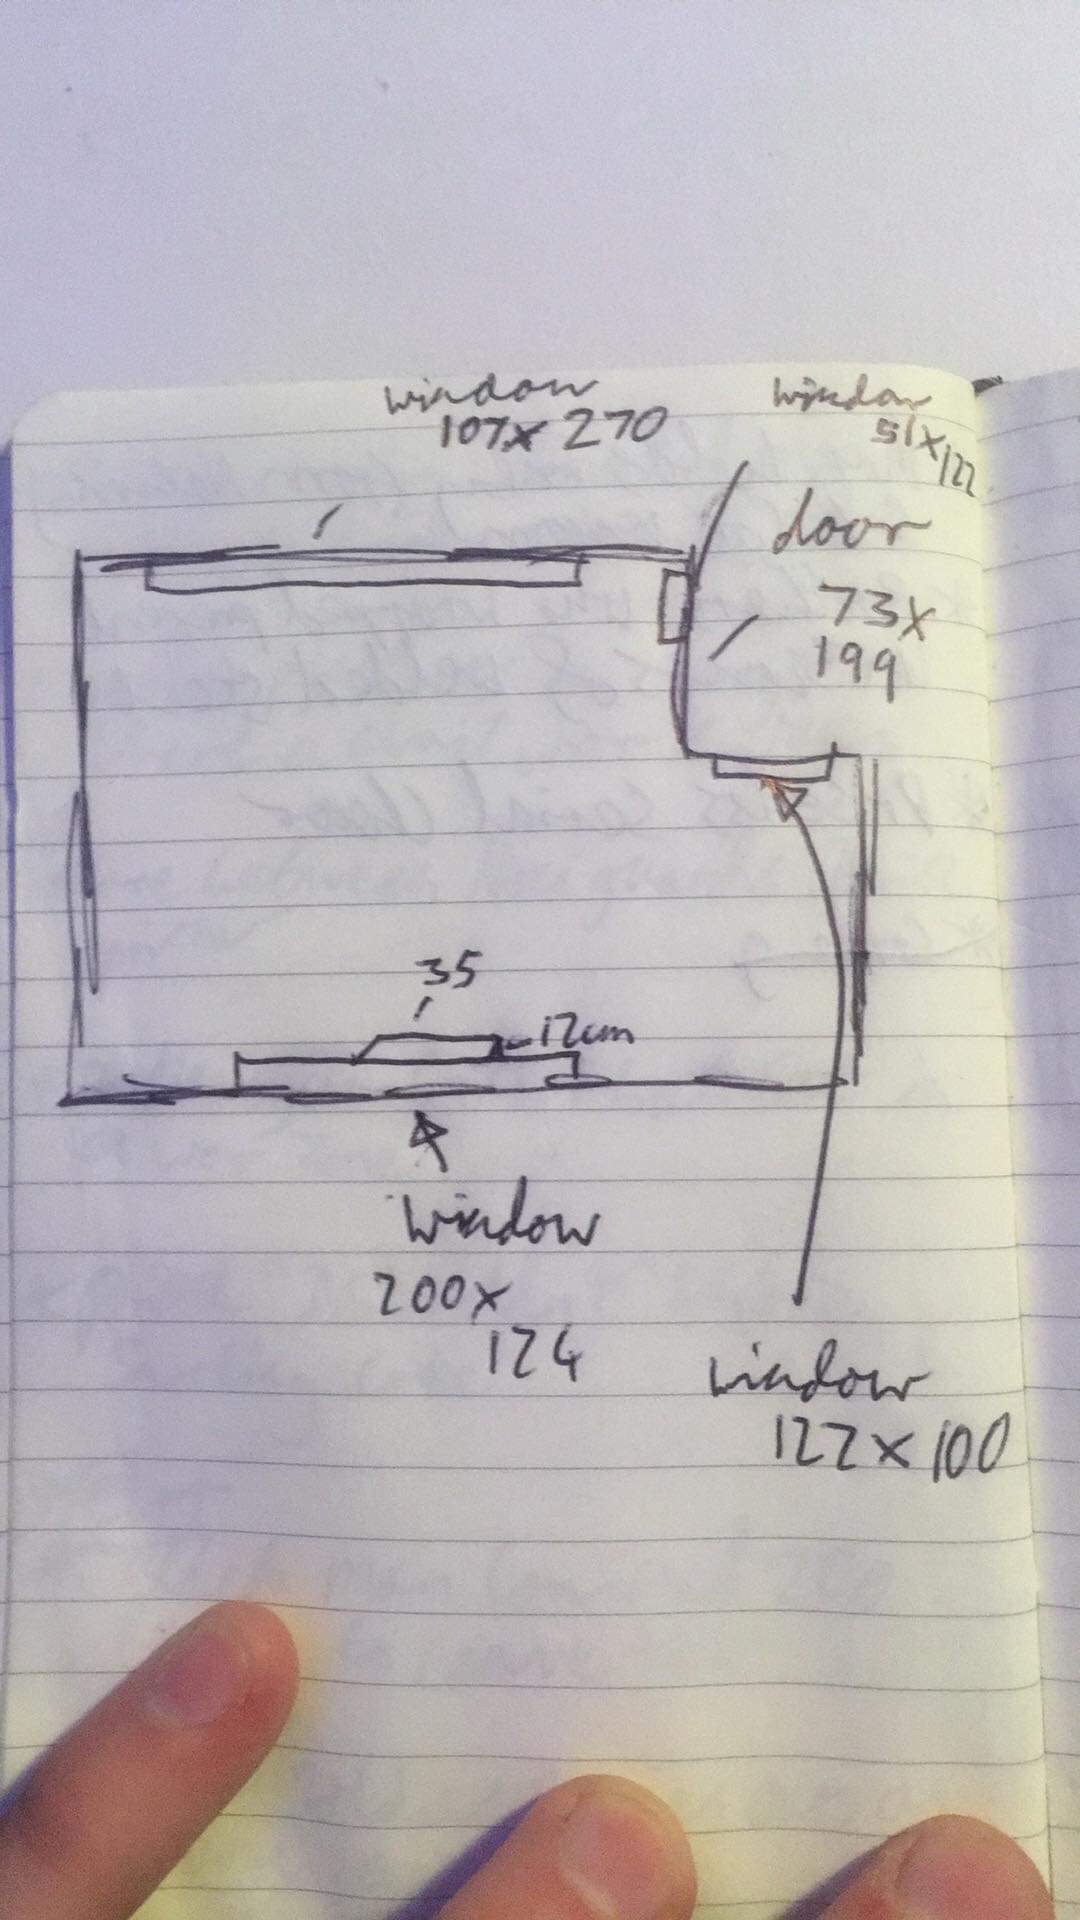 window
107x 270
window
51x
122
door
73x
199
35
12cm
window
200x
124
window
122x100